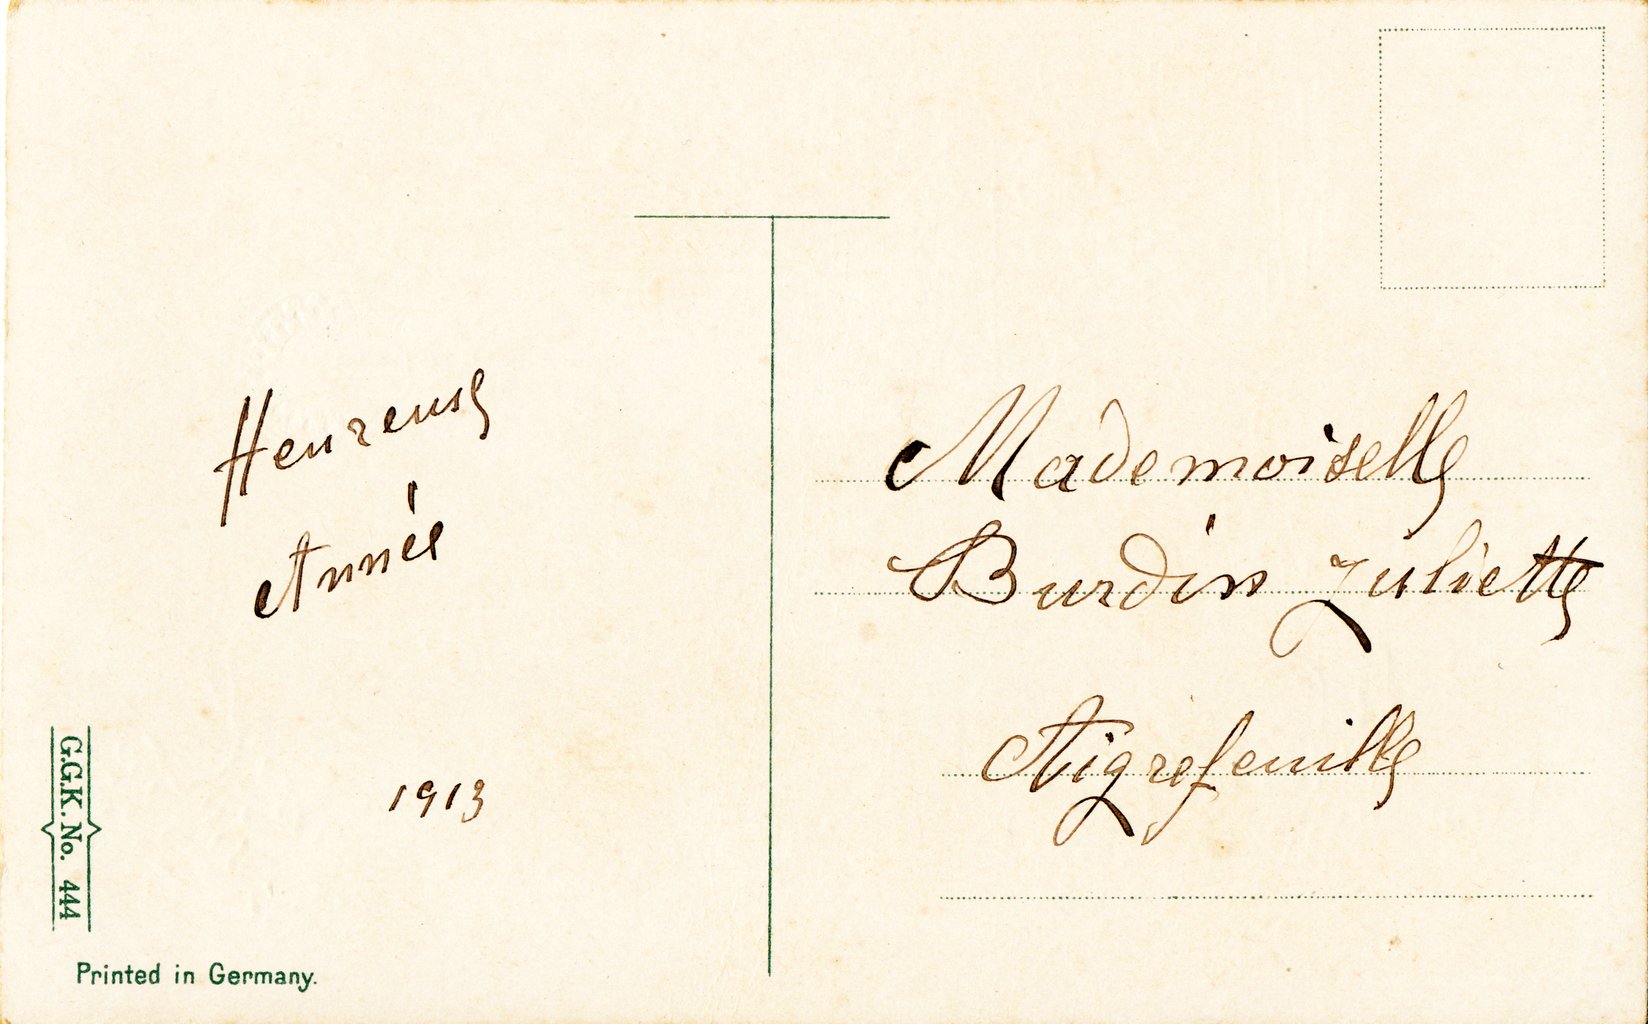 Heureuse
Année
1913
G.G.K. No. 444
Printed in Germany.
Mademoiselle
Burdin Juliette
Aigrefeuille